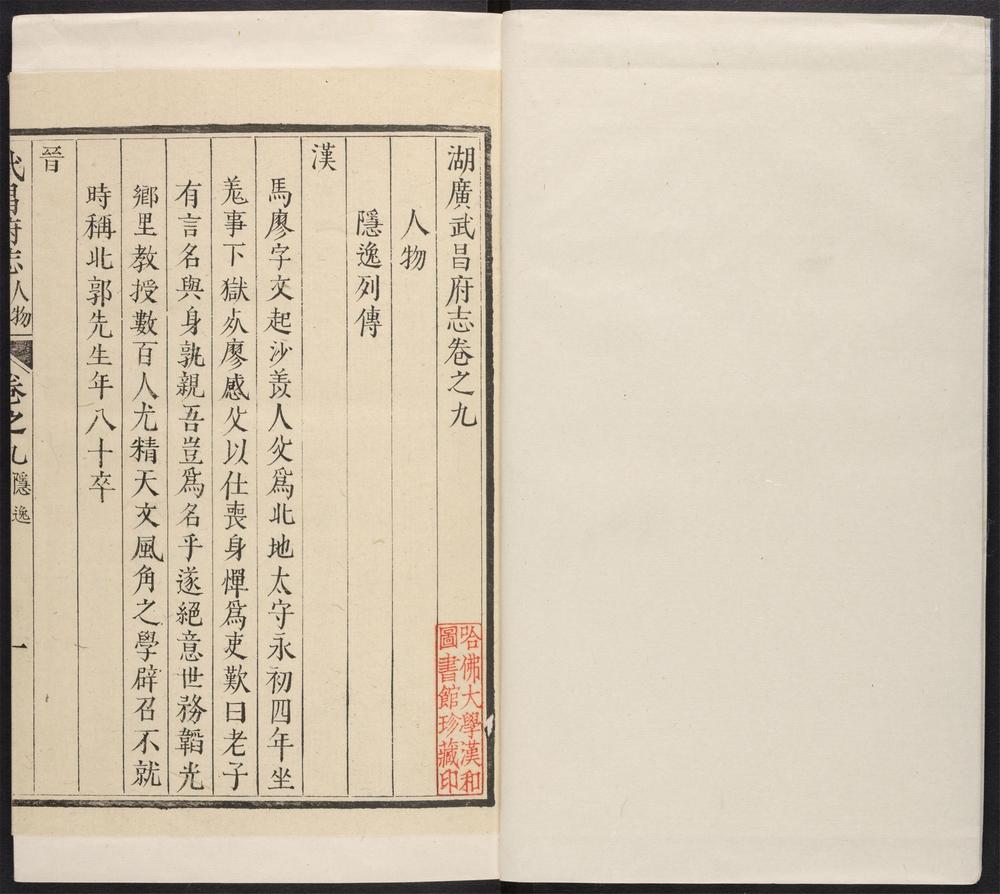 湖廣武昌府志卷之九
人物
隱逸列傳
漢
馬廖字文起沙羨人父爲北地太守永初四年坐
羗事下獄死廖感父以仕喪身憚爲吏歎曰老子
有言名與身孰親吾豈爲名乎遂絕意世務韜光
鄉里教授數百人尤精天文風角之學辟召不就
時稱北郭先生年八十卒
晉
武昌府志人物 卷之九隱逸 一
哈佛大學漢和
圖書館珍藏印